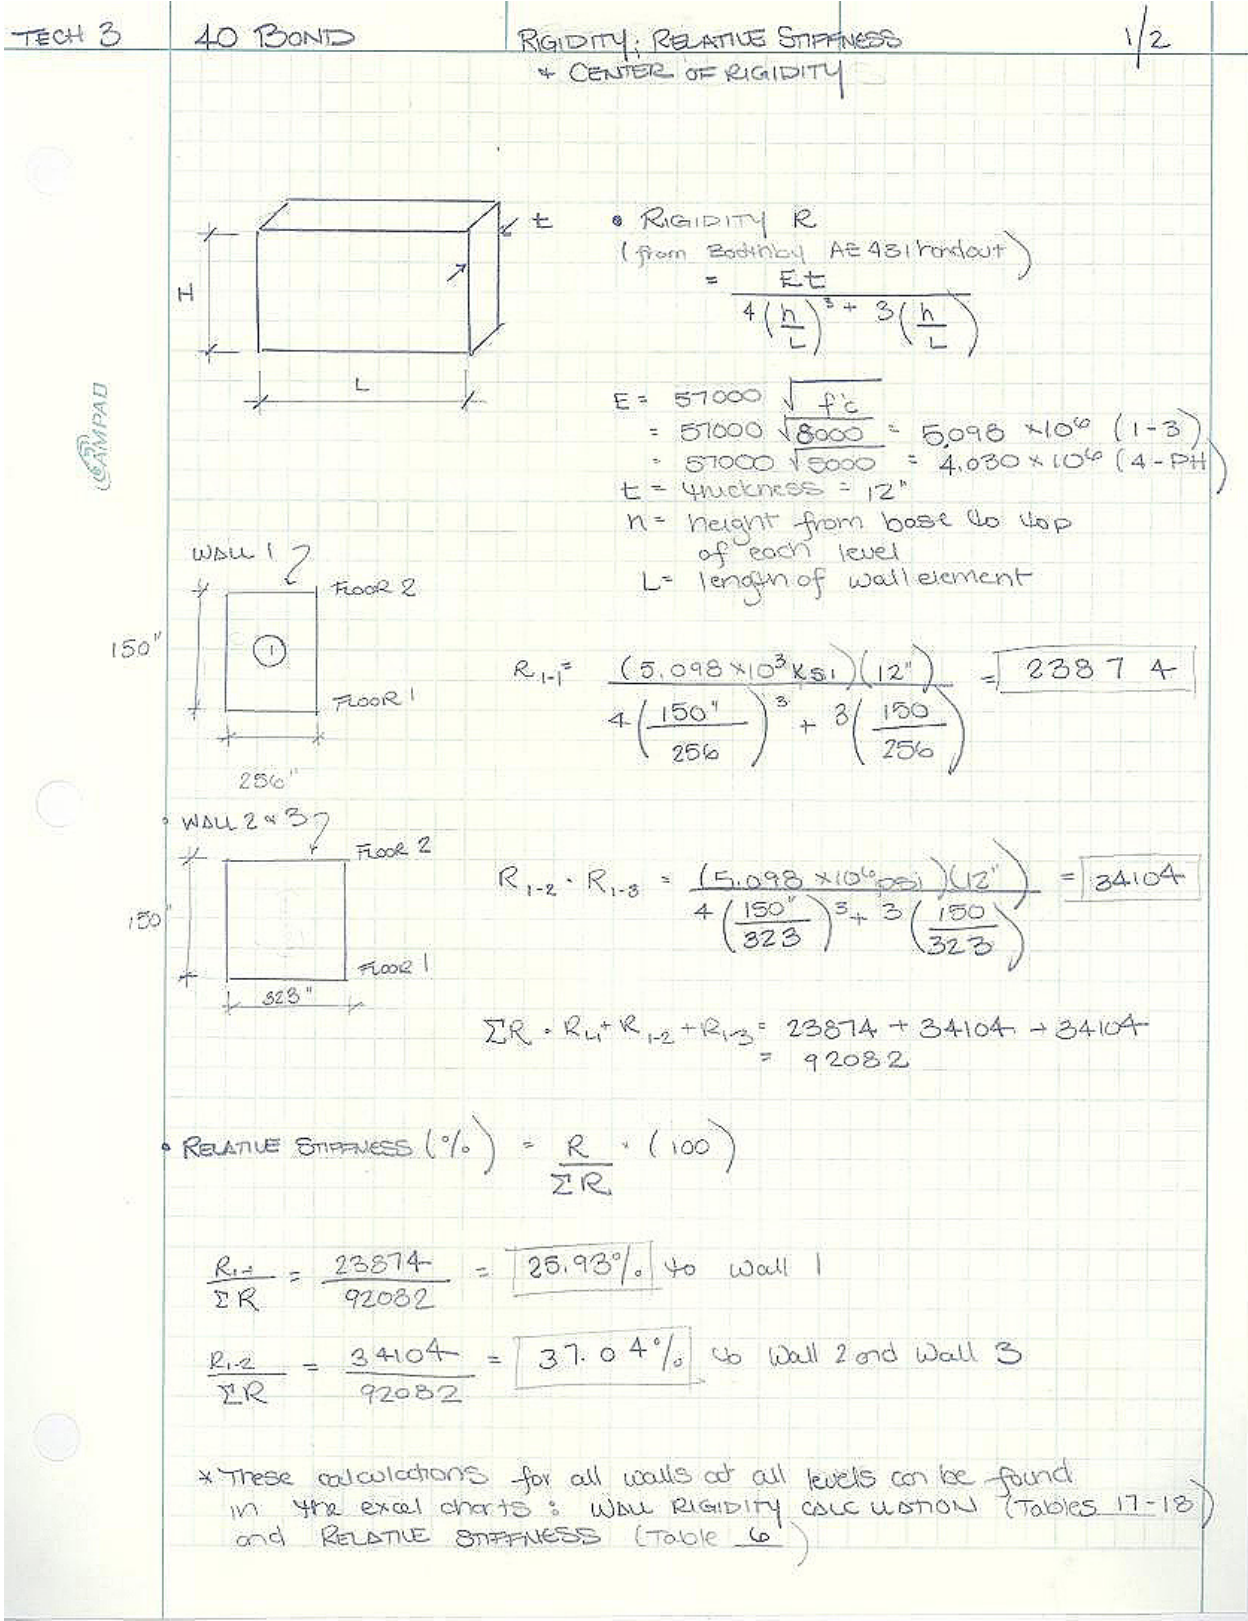 TECH 3 40 BOND RIGIDITY; RELATIVE STIFFNESS 1/2
+ CENTER OF RIGIDITY
t
H
L
CAMPAD
• RIGIDITY R
(from AE 431 handout)
= Et / 4(h/L)³ + 3(h/L)
E = 57000 √f'c
= 57000 √8000 = 5.098 ×10⁶ (1-3)
= 57000 √5000 = 4.030 × 10⁶ (4-PH)
t = thickness = 12"
h = height from base to top
of each level
L = length of wall element
WALL 1
FLOOR 2
150"
1
FLOOR 1
256"
R₁₋₁ = (5.098 ×10³ ksi)(12") / 4(150"/256)³ + 3(150/256) = 23874
• WALL 2 & 3
FLOOR 2
150"
FLOOR 1
323"
R₁₋₂ = R₁₋₃ = (5.098 ×10⁶ psi)(12") / 4(150"/323)³ + 3(150/323) = 34104
ΣR = R₁₋₁ + R₁₋₂ + R₁₋₃ = 23874 + 34104 + 34104
= 92082
• RELATIVE STIFFNESS (%) = R/ΣR · (100)
R₁₋₁/ΣR = 23874/92082 = 25.93% to Wall 1
R₁₋₂/ΣR = 34104/92082 = 37.04% to Wall 2 and Wall 3
* These calculations for all walls at all levels can be found
in the excel charts: WALL RIGIDITY CALCULATION (Tables 17-18)
and RELATIVE STIFFNESS (Table 6)